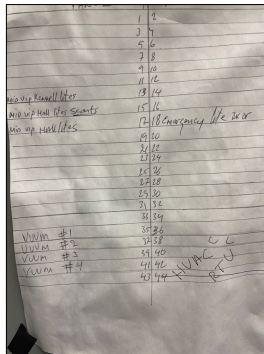 1 2
3 4
5 6
7 8
9 10
11 12
mid vip Kennell lites 13 14
mid vip Hall lites Sconts 15 16
Min vip Hall lites 17 18 emergency lite
19 20
21 22
23 24
25 26
27 28
29 30
31 32
33 34
VUUM #1 35 36
VUUM #2 37 38 LL
VUUM #3 39 40 HVAC RTU
VUUM #4 41 42
43 44